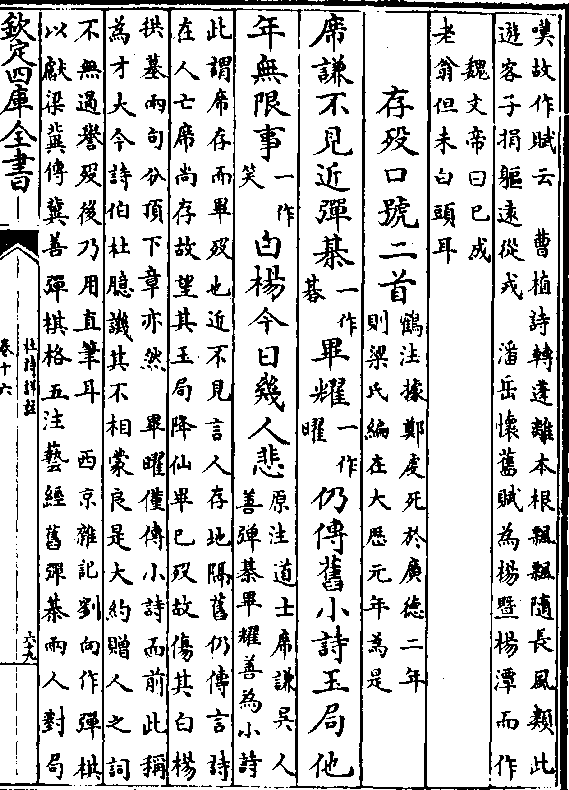 嘆故作賦云　曹植詩轉蓬離本根飄飄隨長風類此
遊客子捐軀遠從戎　潘岳懷舊賦為楊暨楊潭而作
魏文帝曰已成
老翁但未白頭耳
存歿口號二首
鶴注據鄭虔死於廣德二年
則梁氏編在大歴元年為是
席謙不見近彈棊
一作
碁
畢耀
一作
曜
仍傳舊小詩玉局他
年無限事
一作
笑
白楊今日幾人悲
原注道士席謙吳人
善彈棊畢耀善為小詩
此謂席存而畢歿也近不見言人存地隔舊仍傳言詩
在人亡席尚存故望其玉局降仙畢已歿故傷其白楊
拱墓兩句分頂下章亦然　畢曜僅傳小詩而前此稱
為才大今詩伯杜臆譏其不相蒙良是大約贈人之詞
不無過譽歿後乃用直筆耳　西京雜記劉向作彈棋
以獻梁冀傳冀善彈棋格五注藝經舊彈棊兩人對局
欽定四庫全書
杜詩詳註
卷十六
六九